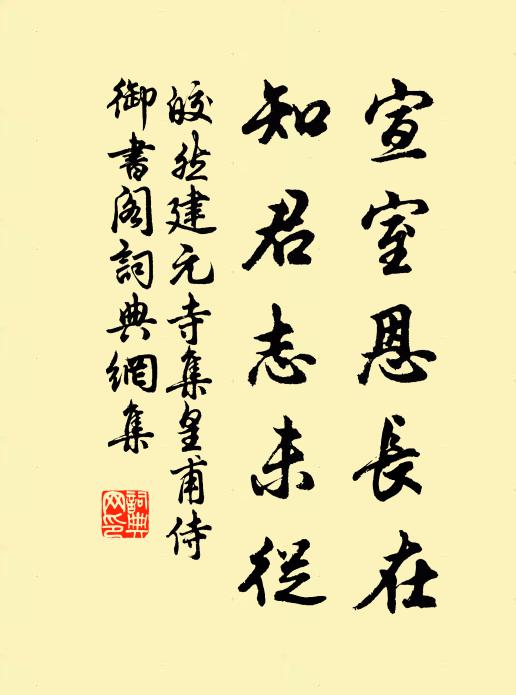 宣室恩長在
知君志未從
皎然建元寺集皇甫侍
御書閣詞典網集
詞典网印